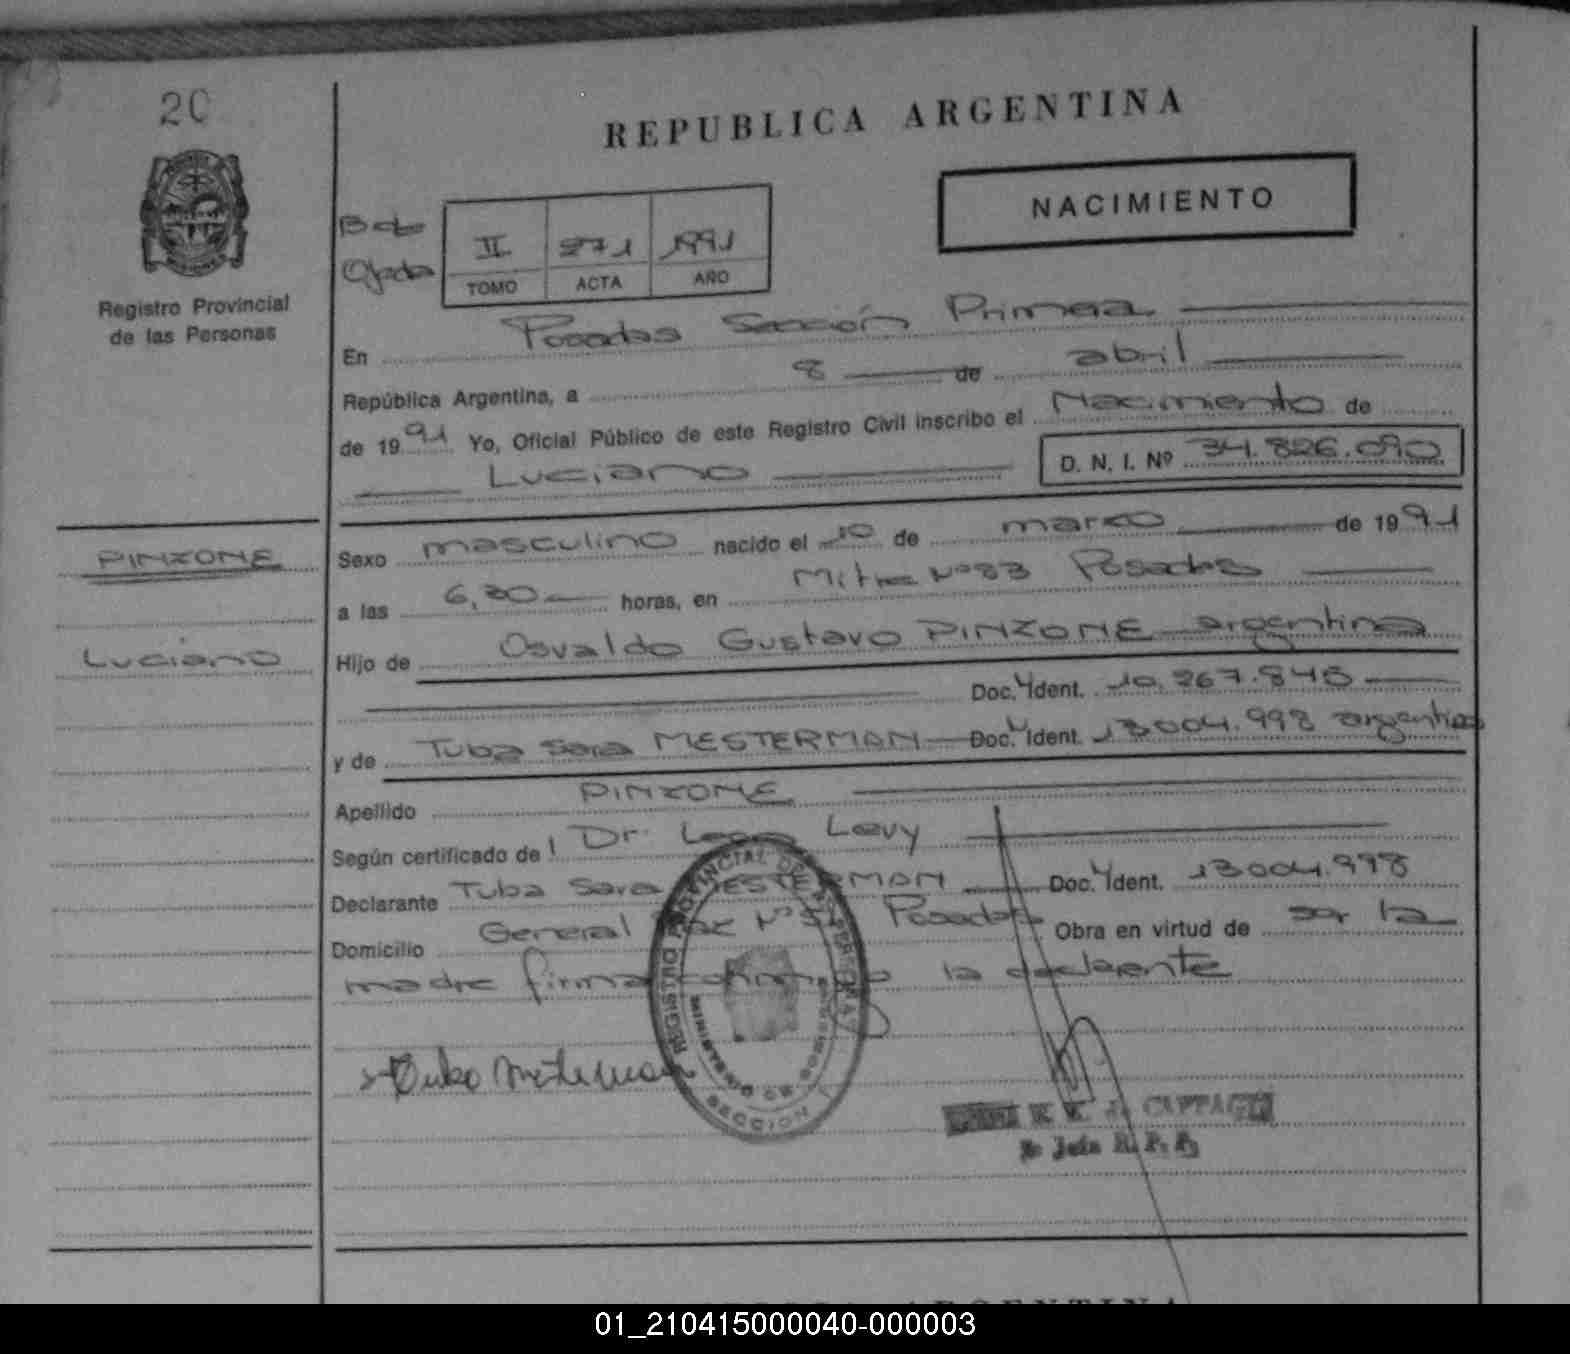 20
REPUBLICA ARGENTINA
NACIMIENTO
II 271 1991
TOMO ACTA AÑO
Registro Provincial
de las Personas
En Posadas Sección Primera
República Argentina, a 8 de abril
de 1991 Yo, Oficial Público de este Registro Civil inscribo el Nacimiento de
Luciano D. N. I. Nº 34.826.090
PINZONE
Sexo masculino nacido el 10 de marzo de 1991
a las 6,30 horas, en Mitre Nº 83 Posadas
Luciano
Hijo de Osvaldo Gustavo PINZONE argentino
Doc. Ident. 10.267.845
y de Tuba Sara MESTERMAN Doc. Ident. 13004.998 argentina
Apellido PINZONE
Según certificado de Dr. Levy
Declarante Tuba Sara MESTERMAN Doc. Ident. 13004.998
Domicilio General Nº Posadas Obra en virtud de ser la
madre firma la declarente
REGISTRO PROVINCIAL DE LAS PERSONAS
SECCION
Jefe R. P. P.
REPUBLICA ARGENTINA
01_210415000040-000003